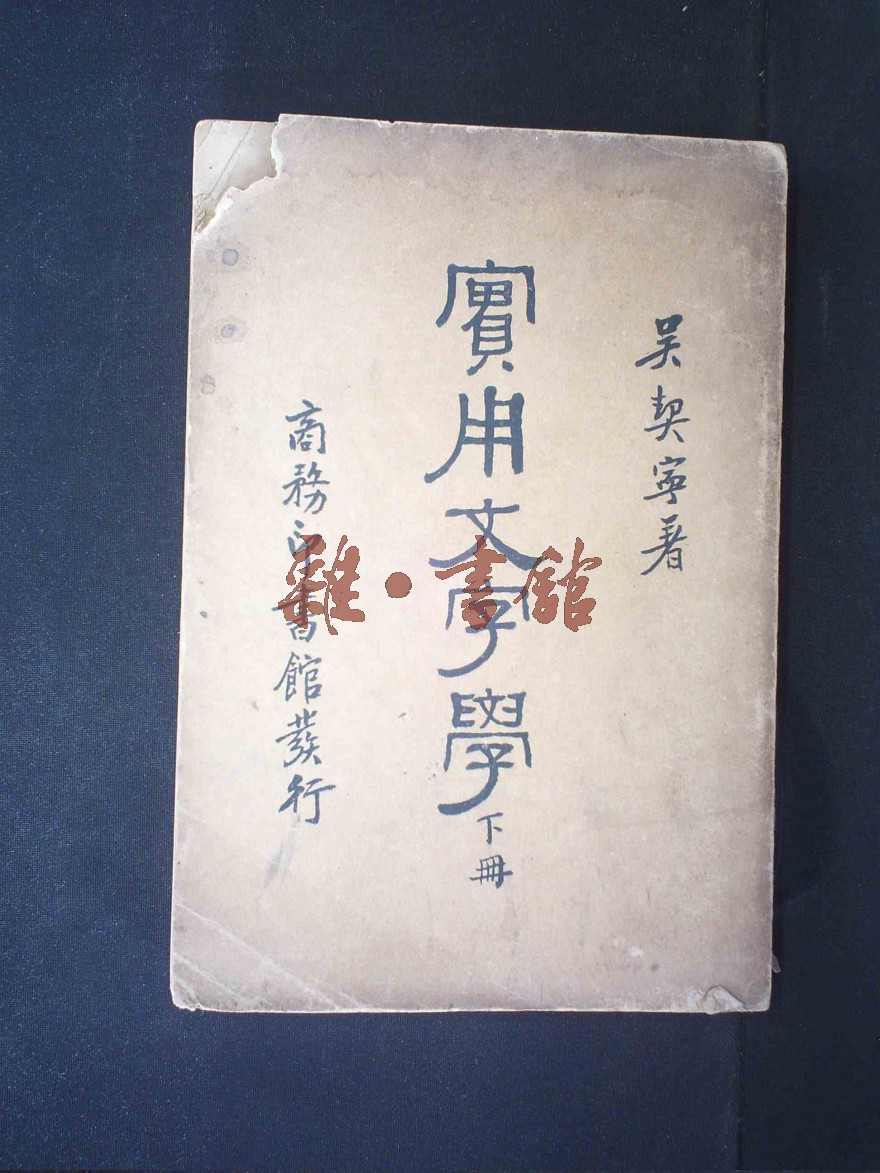 吴契寧著
實用文字學
下冊
商務印書館發行
雜·書館